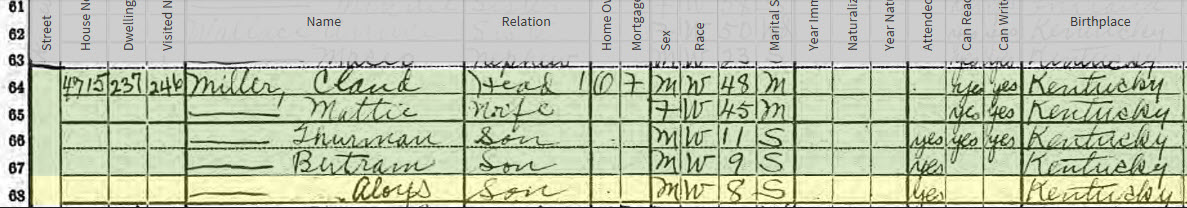 61
62
63
Street House N Dwelling Visited N Name Relation Home O Mortgag Sex Race Marital S Year Imm Naturaliz Year Nat Attended Can Rea Can Writ Birthplace
64 4715 237 246 Miller, Claud Head 1 O 7 M W 48 M yes yes Kentucky
65 Mattie Wife F W 45 M yes yes Kentucky
66 Thurman Son M W 11 S yes yes yes Kentucky
67 Bertram Son M W 9 S yes Kentucky
68 Aloys Son M W 8 S yes Kentucky